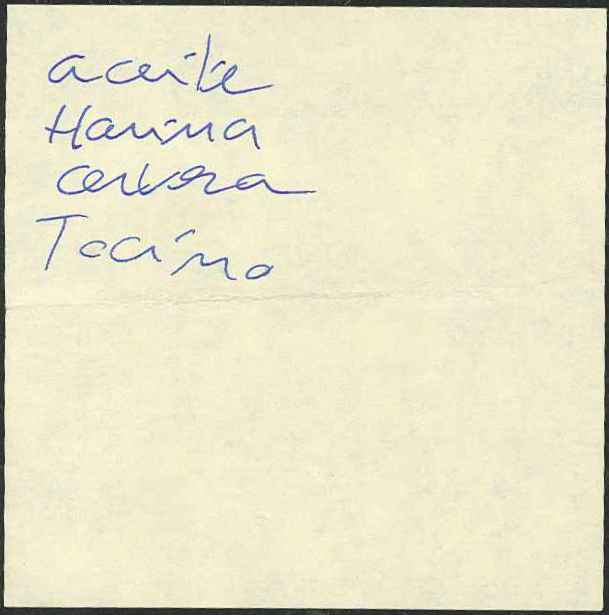 aceite
Harina
cerveza
Tocino